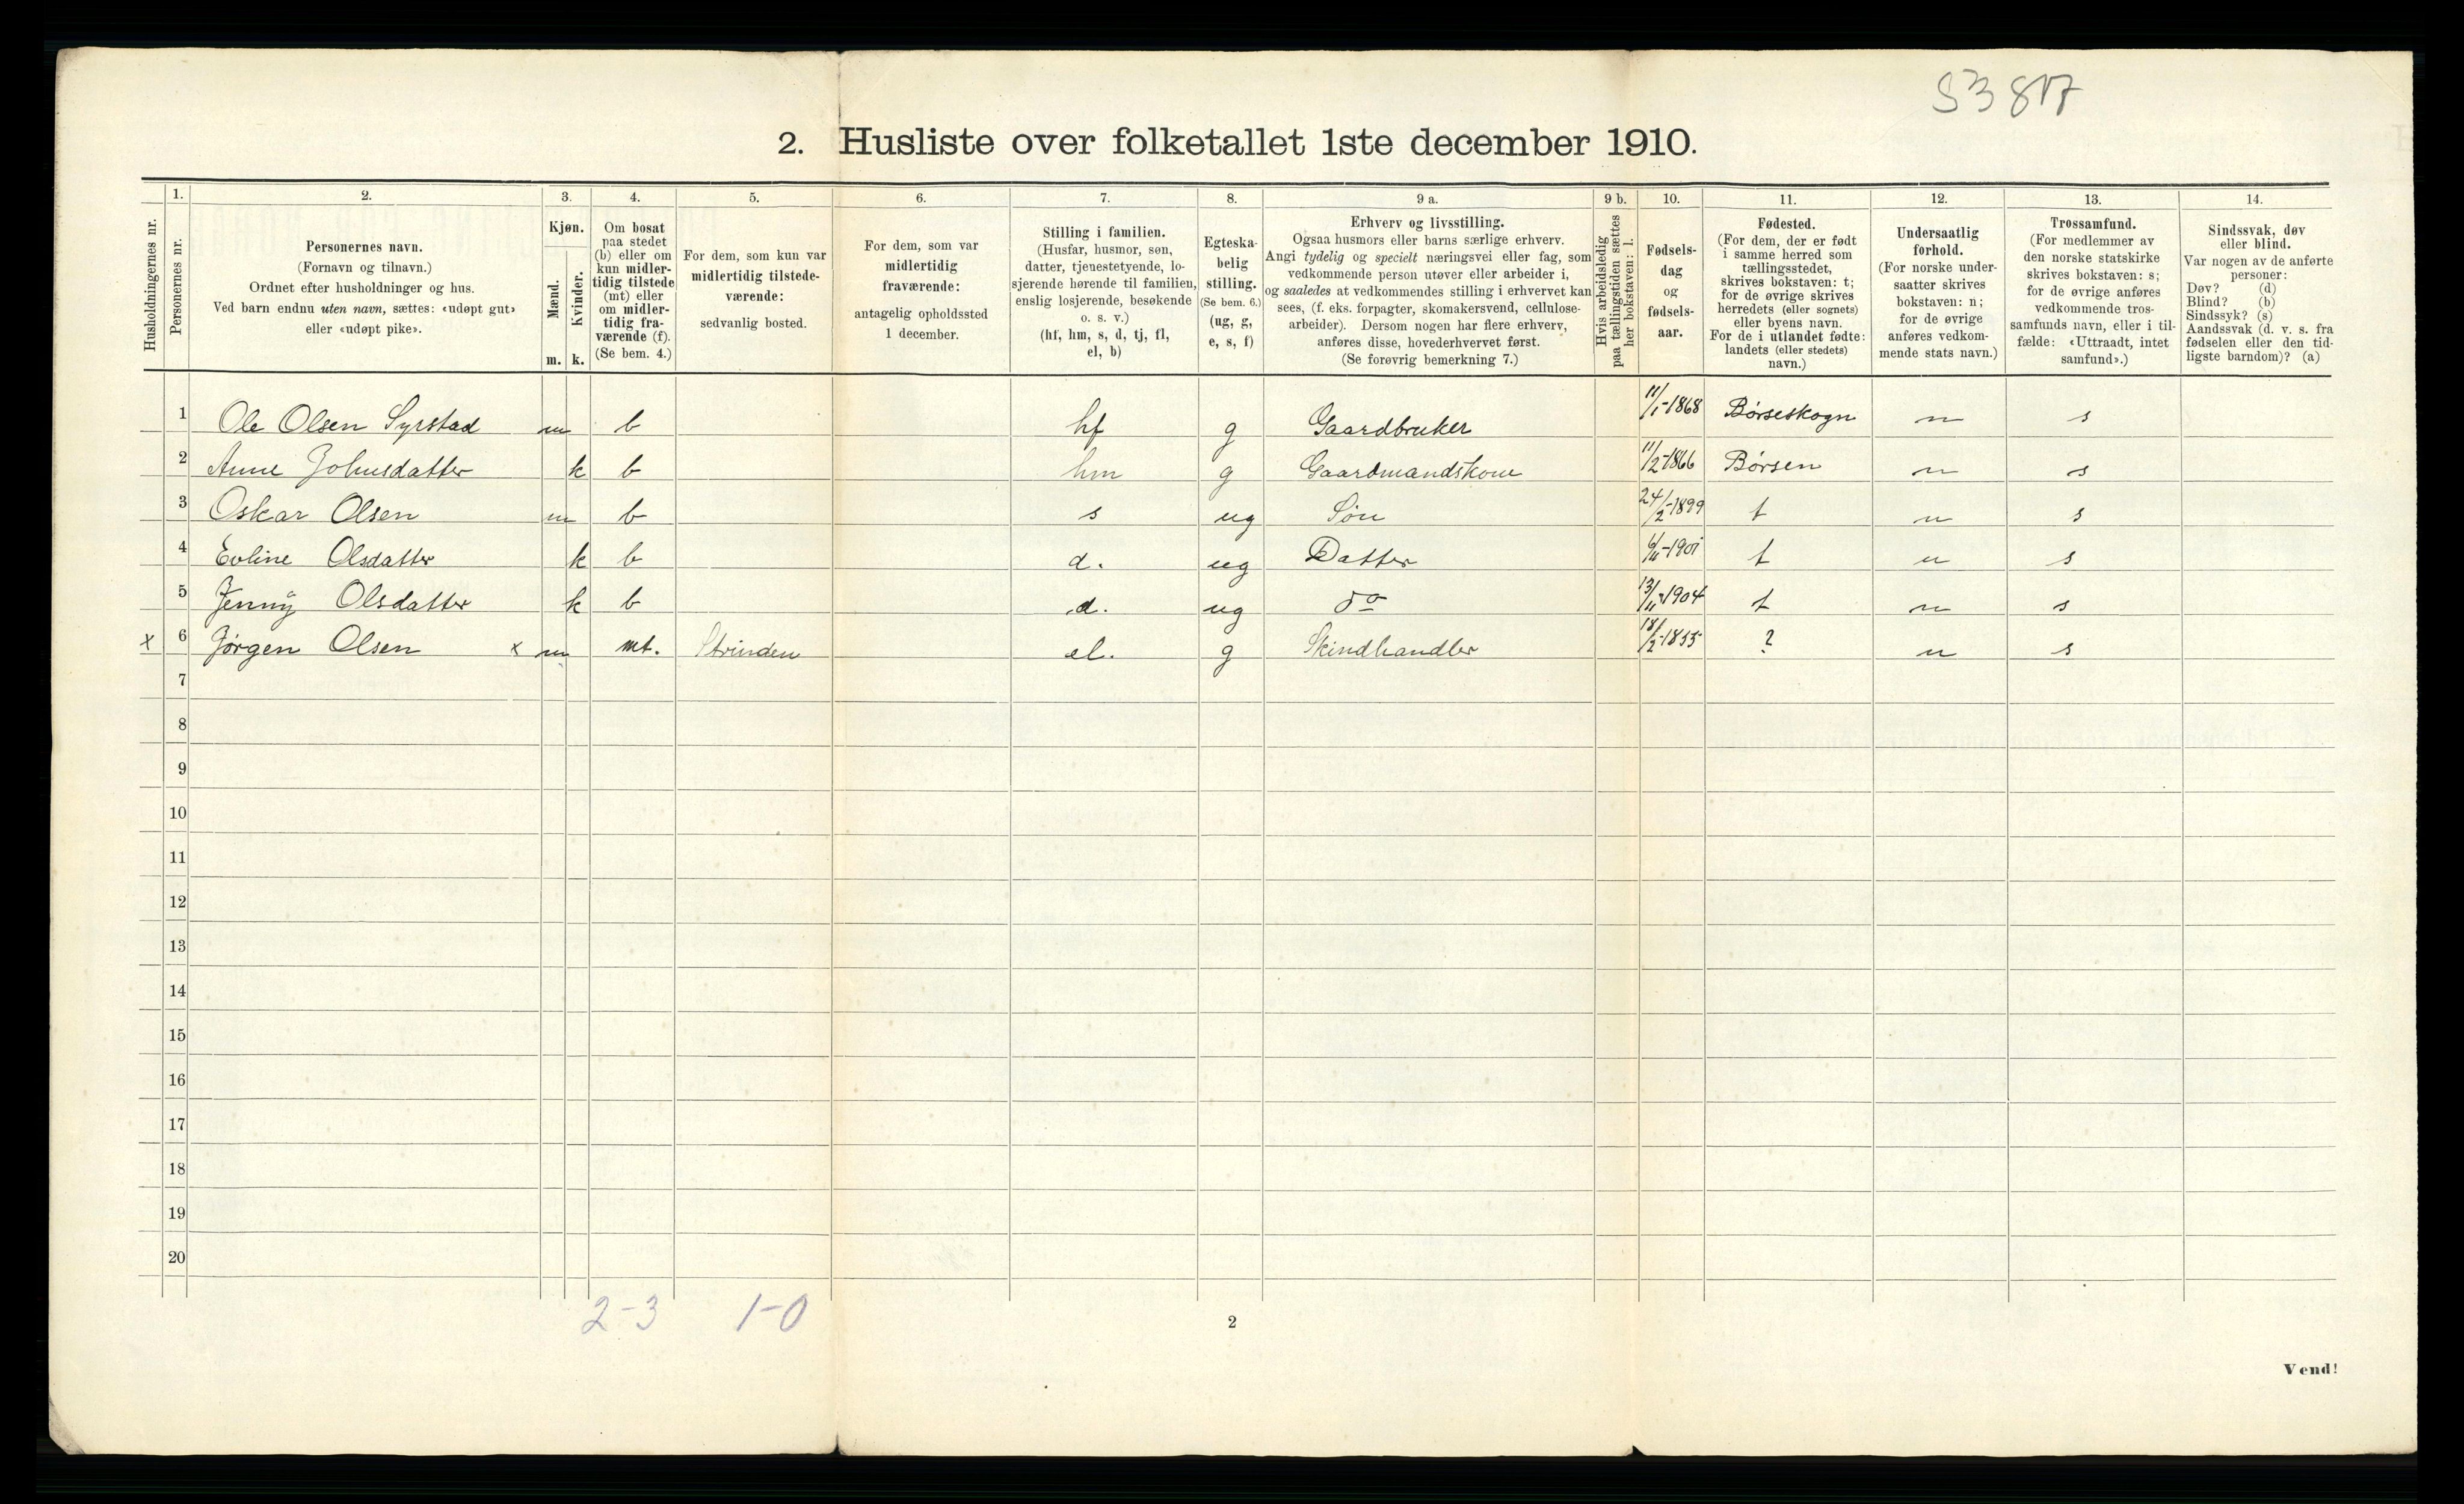 53 817
2. Husliste over folketallet 1ste december 1910.
Husholdningernes nr.
1. Personernes nr.
2. Personernes navn.
(Fornavn og tilnavn.)
Ordnet efter husholdninger og hus.
Ved barn endnu uten navn, sættes: «udøpt gut»
eller «udøpt pike».
3. Kjøn.
Mænd. m.
Kvinder. k.
4. Om bosat
paa stedet
(b) eller om
kun midler-
tidig tilstede
(mt) eller
om midler-
tidig fra-
værende (f).
(Se bem. 4.)
5. For dem, som kun var
midlertidig tilstede-
værende:
sedvanlig bosted.
6. For dem, som var
midlertidig
fraværende:
antagelig opholdssted
1 december.
7. Stilling i familien.
(Husfar, husmor, søn,
datter, tjenestetyende, lo-
sjerende hørende til familien,
enslig losjerende, besøkende
o. s. v.)
(hf, hm, s, d, tj, fl,
el, b)
8. Egteska-
belig
stilling.
(Se bem. 6.)
(ug, g,
e, s, f)
9 a. Erhverv og livsstilling.
Ogsaa husmors eller barns særlige erhverv.
Angi tydelig og specielt næringsvei eller fag, som
vedkommende person utøver eller arbeider i,
og saaledes at vedkommendes stilling i erhvervet kan
sees, (f. eks. forpagter, skomakersvend, cellulose-
arbeider). Dersom nogen har flere erhverv,
anføres disse, hovederhvervet først.
(Se forøvrig bemerkning 7.)
9 b. Hvis arbeidsledig
paa tællingstiden sættes
her bokstaven: l.
10. Fødsels-
dag
og
fødsels-
aar.
11. Fødested.
(For dem, der er født
i samme herred som
tællingsstedet,
skrives bokstaven: t;
for de øvrige skrives
herredets (eller sognets)
eller byens navn.
For de i utlandet fødte:
landets (eller stedets)
navn.)
12. Undersaatlig
forhold.
(For norske under-
saatter skrives
bokstaven: n;
for de øvrige
anføres vedkom-
mende stats navn.)
13. Trossamfund.
(For medlemmer av
den norske statskirke
skrives bokstaven: s;
for de øvrige anføres
vedkommende tros-
samfunds navn, eller i til-
fælde: «Uttraadt, intet
samfund».)
14. Sindssvak, døv
eller blind.
Var nogen av de anførte
personer:
Døv? (d)
Blind? (b)
Sindssyk? (s)
Aandssvak (d. v. s. fra
fødselen eller den tid-
ligste barndom)? (a)
1 Ole Olsen Syrstad m b hf g Gaardbruker 11/1-1868 Børseskogn n s
2 Anne Johnsdatter k b hm g Gaardmandskone 11/2-1866 Børsen n s
3 Oskar Olsen m b s ug Søn 24/2-1899 t n s
4 Evline Olsdatter k b d. ug Datter 6/11-1901 t n s
5 Jenny Olsdatter k b d. ug do 13/11-1904 t n s
x 6 Jørgen Olsen x m mt. Strinden el. g Skindhandler 18/2-1855 ? n s
7
8
9
10
11
12
13
14
15
16
17
18
19
20
2-3 1-0
2
Vend!